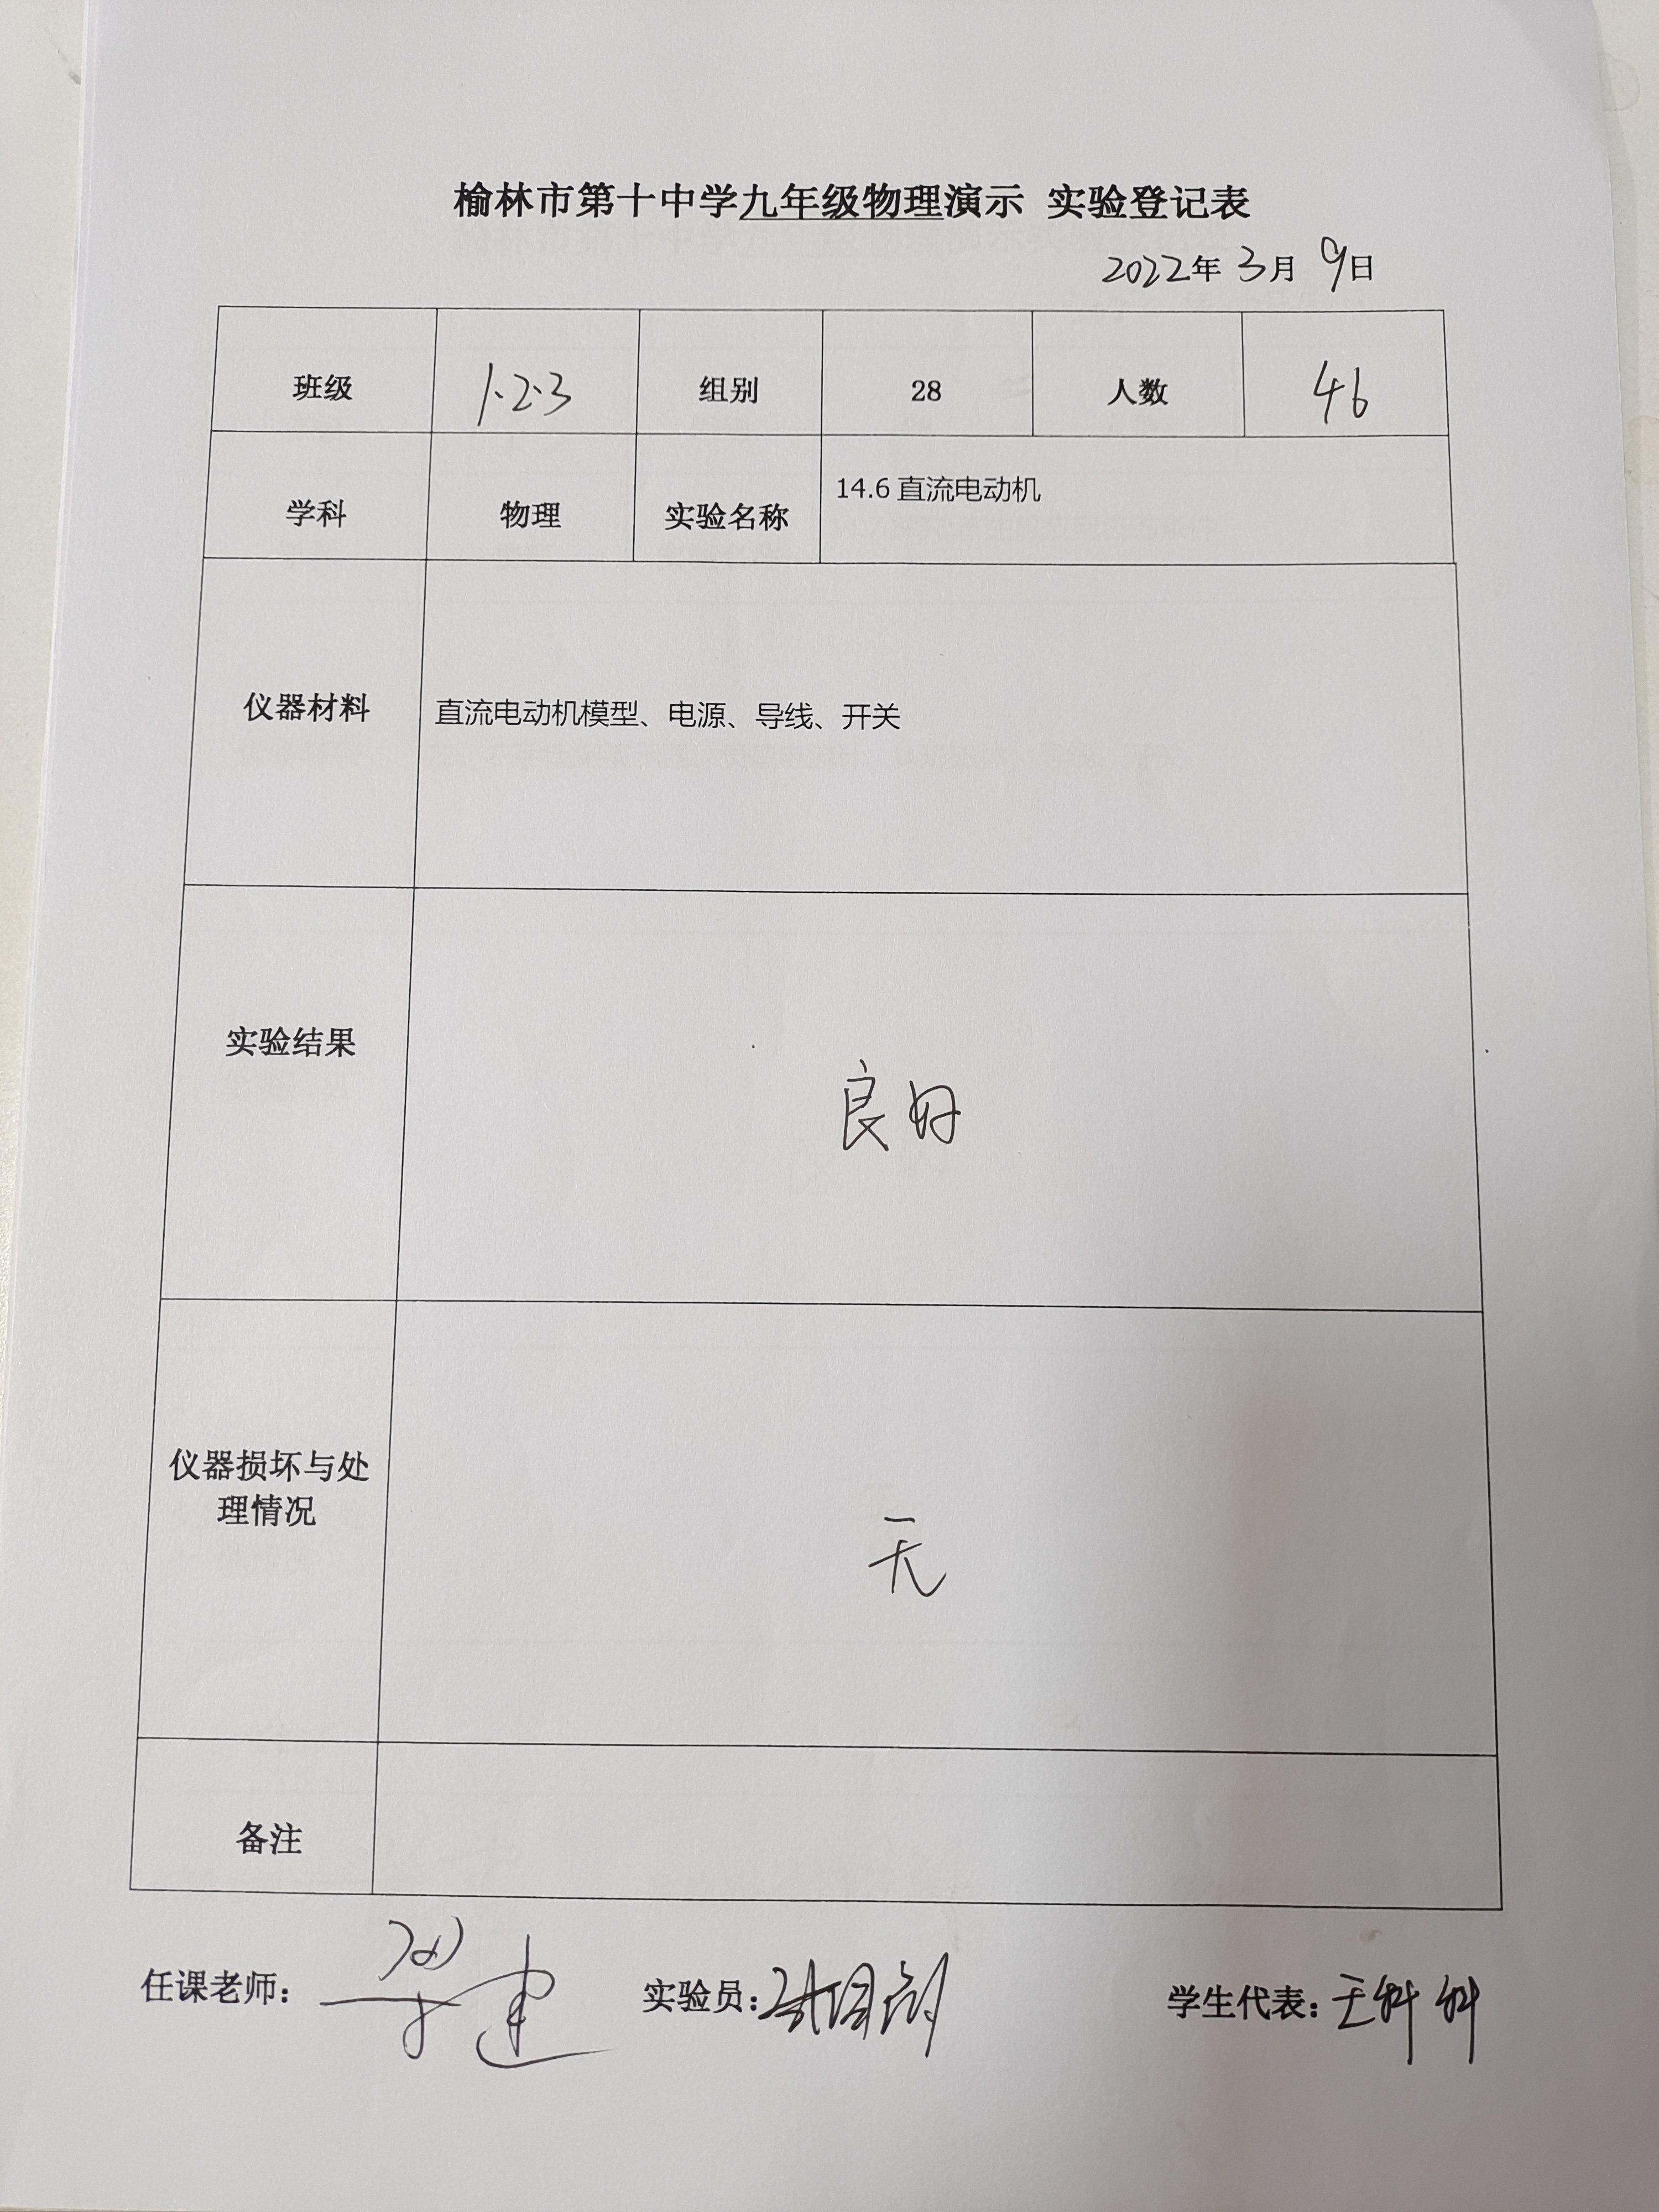 榆林市第十中学九年级物理演示 实验登记表
2022年 3月 9日
班级 1.2.3 组别 28 人数 46
学科 物理 实验名称 14.6 直流电动机
仪器材料 直流电动机模型、电源、导线、开关
实验结果 良好
仪器损坏与处
理情况 无
备注
任课老师： 实验员： 学生代表：